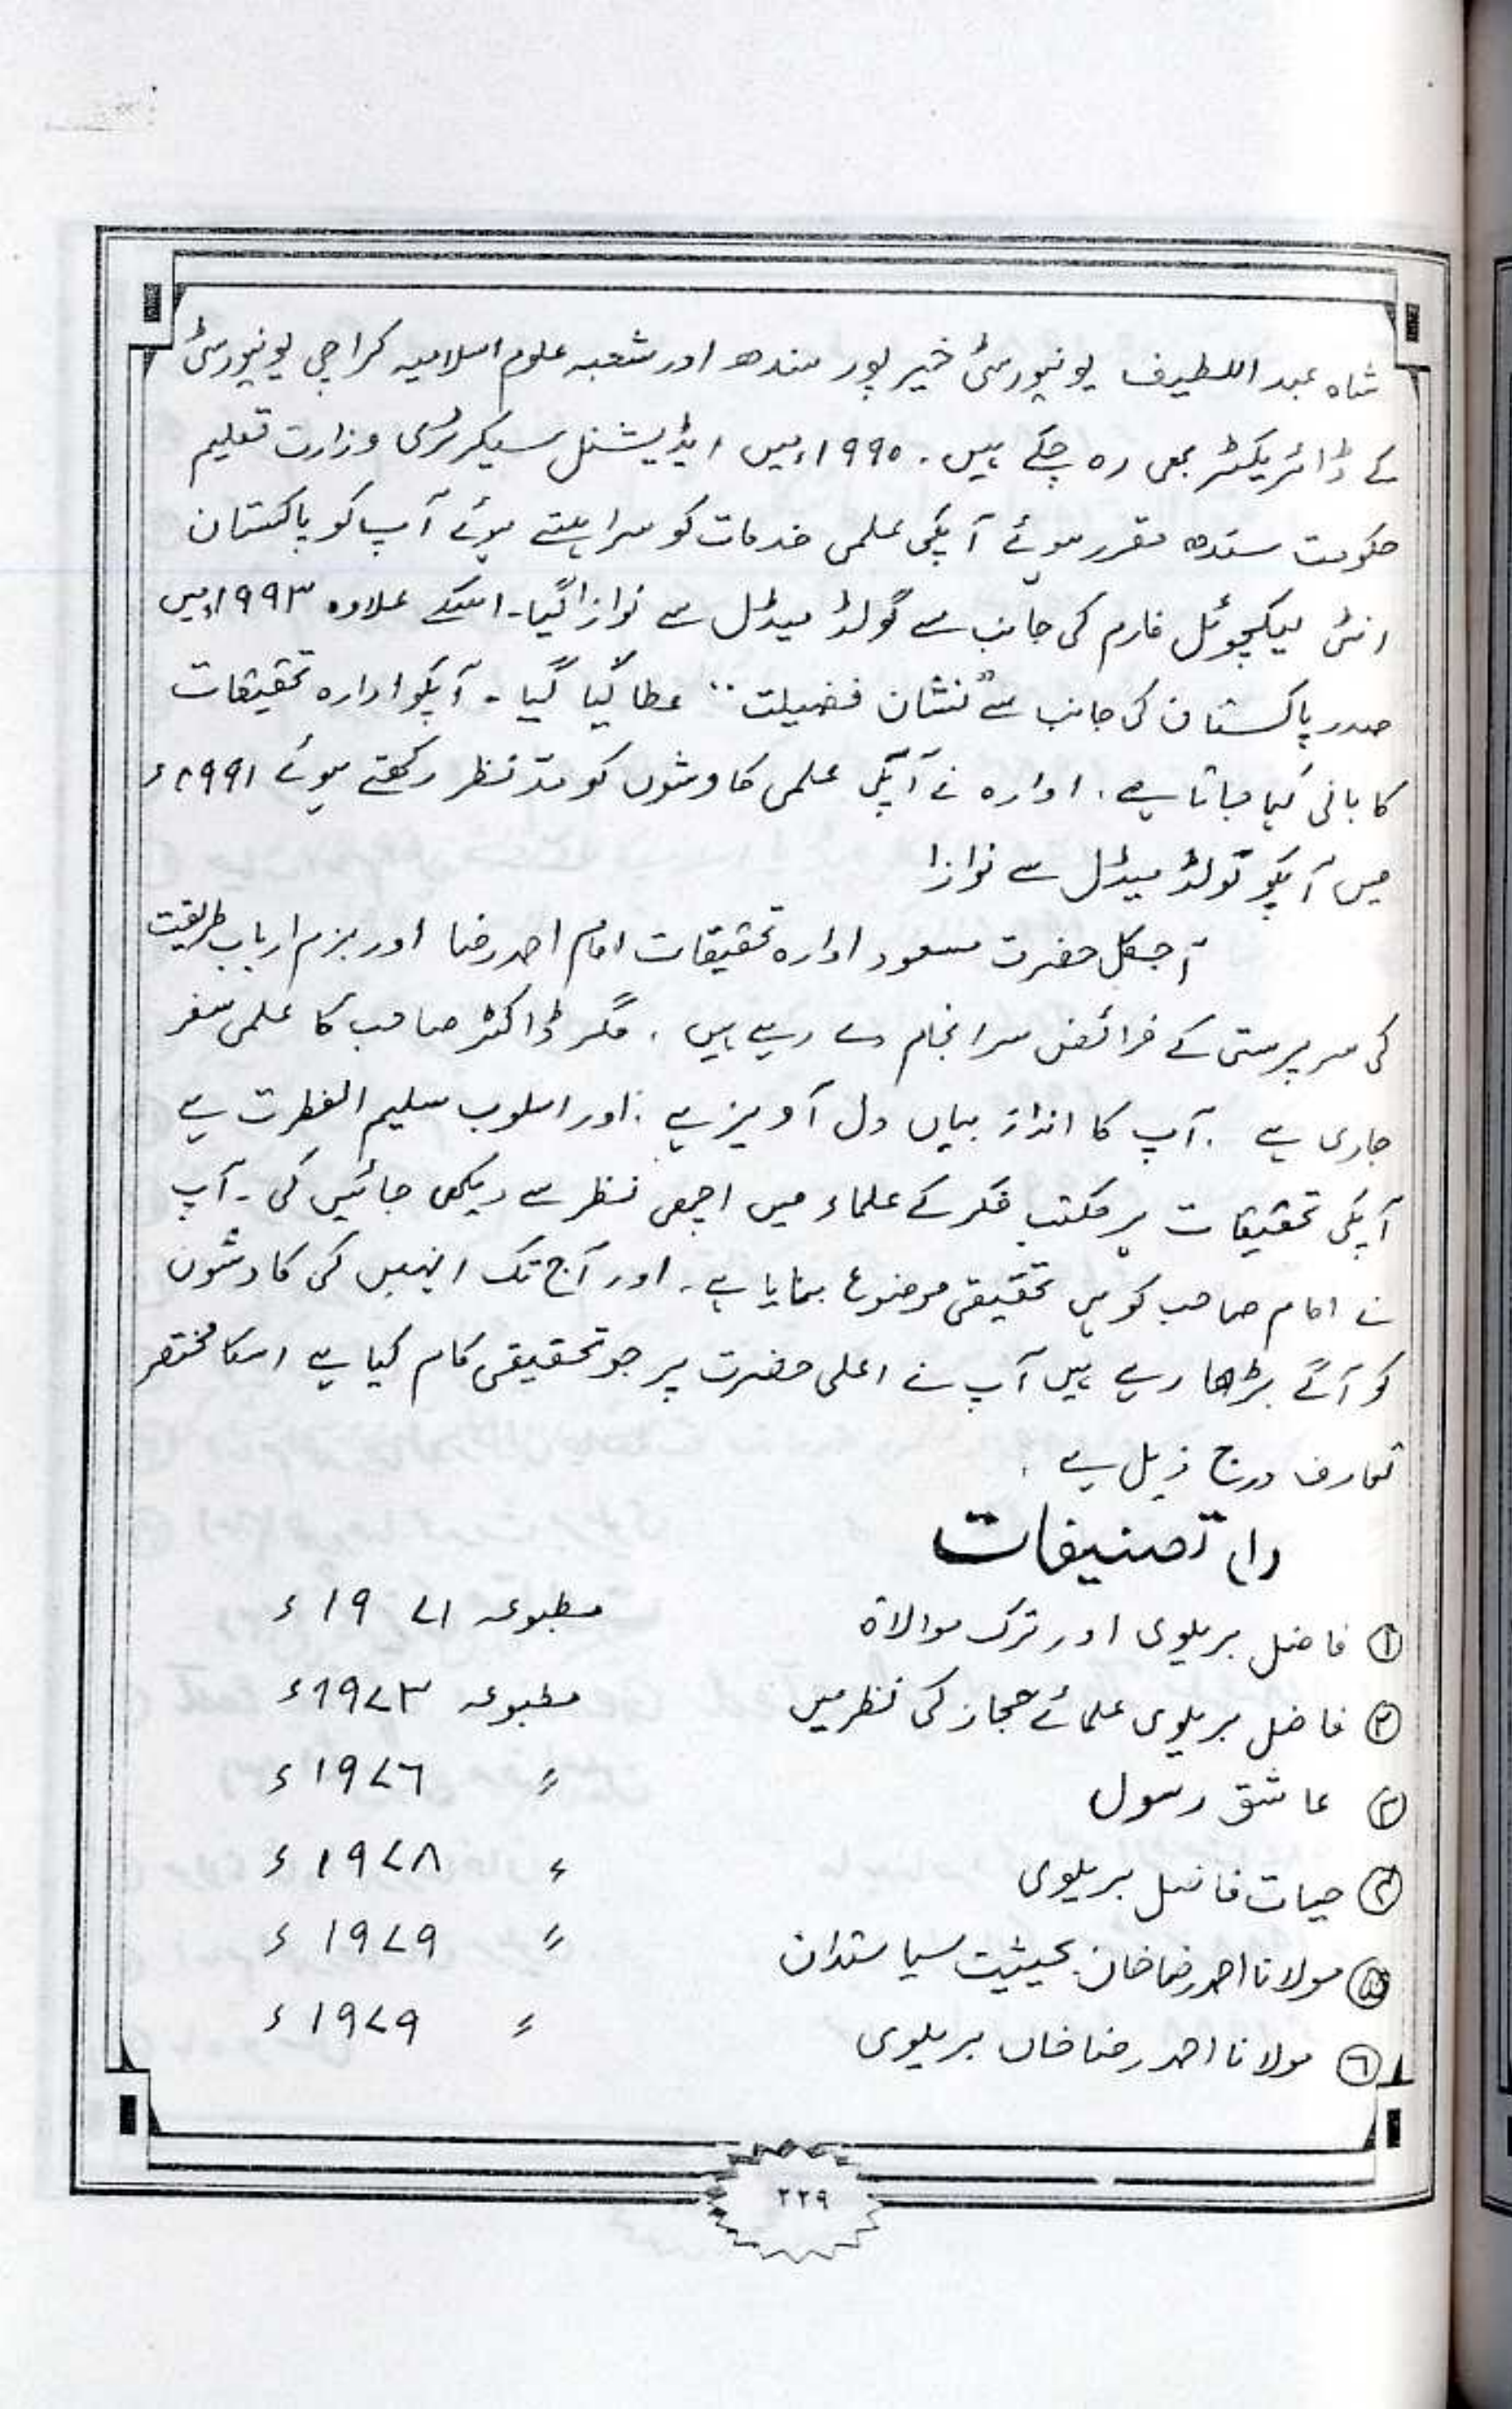 شاہ عبد اللطیف یونیورسٹی خیر پور سندھ اور شعبہ علوم اسلامیہ کراچی یونیورسٹی
کے ڈائریکٹر بھی رہ چکے ہیں۔ ۱۹۹۰ء میں ایڈیشنل سیکرٹری وزارت تعلیم
حکومت سندھ مقرر ہوئے آپکی علمی خدمات کو سراہتے ہوئے آپ کو پاکستان
انٹی لیکچوئل فارم کی جانب سے گولڈ میڈل سے نوازا گیا۔ اسکے علاوہ ۱۹۹۳ء میں
صدر پاکستان کی جانب سے "نشان فضیلت" عطا کیا گیا۔ آپکو ادارہ تحقیقات
کا بانی کہا جاتا ہے۔ ادارہ نے آپکی علمی کاوشوں کو مدّنظر رکھتے ہوئے ۱۹۹۱ء
میں آپکو گولڈ میڈل سے نوازا
آجکل حضرت مسعود ادارہ تحقیقات امام احمد رضا اور بزم ارباب طریقت
کی سرپرستی کے فرائض سرانجام دے رہے ہیں۔ مگر ڈاکٹر صاحب کا علمی سفر
جاری ہے۔ آپ کا انداز بیاں دل آویز ہے۔ اور اسلوب سلیم الفطرت ہے
آپکی تحقیقات ہر مکتب فکر کے علماء میں اچھی نظر سے دیکھی جائیں گی۔ آپ
نے امام صاحب کو ہی تحقیقی موضوع بنایا ہے۔ اور آج تک انہیں کی کاوشوں
کو آگے بڑھا رہے ہیں آپ نے اعلی حضرت پر جو تحقیقی کام کیا ہے اسکا مختصر
تعارف درج ذیل ہے۔
(۱) تصنیفات
① فاضل بریلوی اور ترک موالاۃ مطبوعہ ۱۹۷۱ء
② فاضل بریلوی علمائے حجاز کی نظر میں مطبوعہ ۱۹۷۳ء
③ عاشق رسول " ۱۹۷۶ء
④ حیات فاضل بریلوی " ۱۹۷۸ء
⑤ مولانا احمد رضا خان بحیثیت سیاستدان " ۱۹۷۹ء
⑥ مولانا احمد رضا خاں بریلوی " ۱۹۷۹ء
۲۲۹